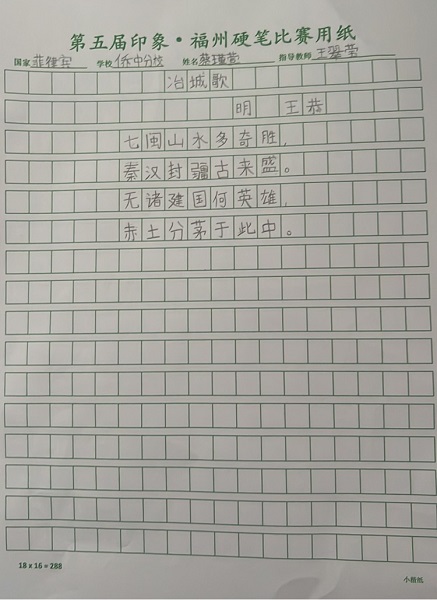 第五届印象·福州硬笔比赛用纸
国家 菲律宾 学校 侨中分校 姓名 蔡瑾萱 指导教师 王翠莹
冶城歌
明 王恭
七闽山水多奇胜,
秦汉封疆古来盛。
无诸建国何英雄,
赤土分茅于此中。
18 x 16 = 288
小楷纸